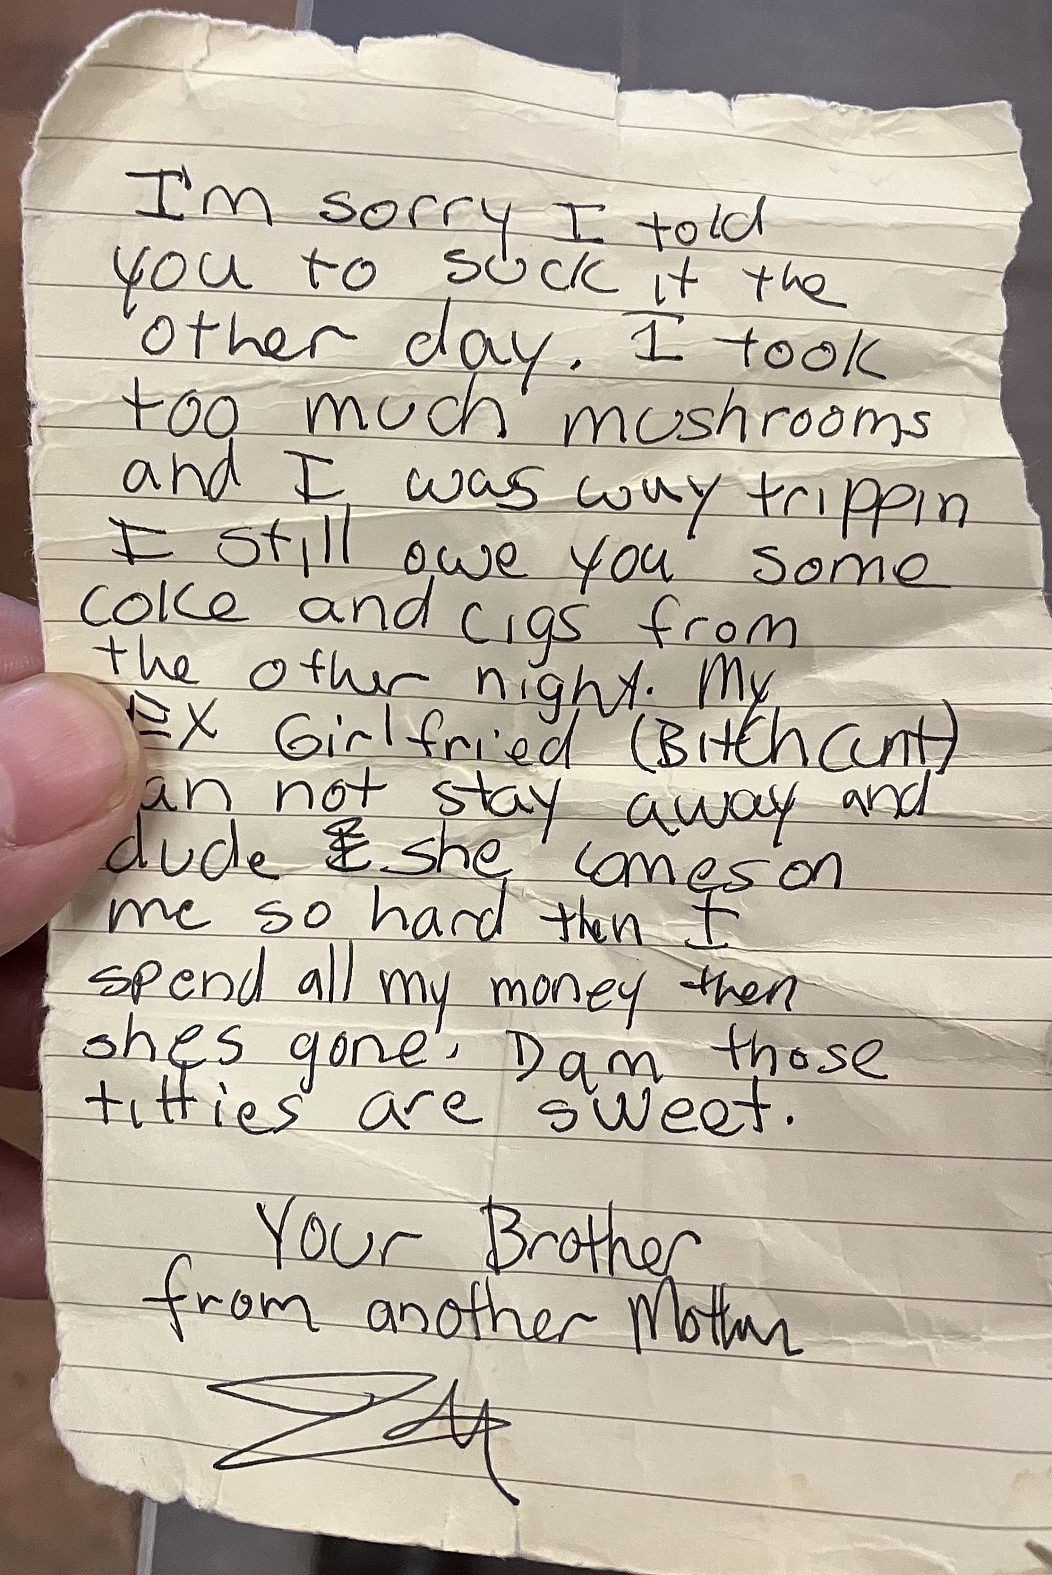 I'm sorry I told
you to suck it the
other day. I took
too much mushrooms
and I was wuy trippin
I still owe you some
coke and cigs from
the other night. My
EX Girlfried (Bitch Cunt)
an not stay away and
dude she comes on
me so hard then I
spend all my money then
shes gone. Dam those
titties are sweet.
Your Brother
from another Mother